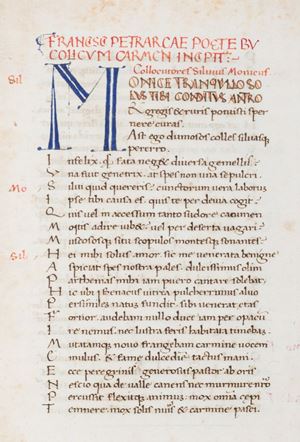 FRANCISCI PETRARCAE POETE BU
COLICUM CARMEN INCEPIT:
Collocutores Silvius Monicus
Sil
MONICE TRANQVILLO SO
LVS TIBI CONDITVS ANTRO
Et gregis & ruris potuisti sper
nere curas.
Ast ego dumosos colles silvasque
pererro.
Infelix. quis fata neget diversa gemellis?
Una fuit genetrix. at spes non una sepulcri
Mo
Silvi quid quereris? cunctorum vera laborum
Ipse tibi causa es. quis te per devia cogit.
Quis vel inaccessum tanto sudore cacumen
Montis adire iubet? vel per deserta vagari
Muscososque situ scopulos montesque sonantes.
Sil
Hei mihi solus amor. sic me venerata benigne
Aspiciat spes nostra pales. dulcissimus olim
Parthenias mihi iam puero cantare solebat
Hic ubi benacus vitrea pulcherrimus alvo
Persimiles natus fundit sibi. venerat etas
Fortior. audebam nullo duce iam per opacum
Ire nemus. nec lustra feris habitata timebam.
Mutatamque novo frangebam carmine vocem
Emulus. & fame dulcedine tactus inani.
Ecce peregrinis generosus pastor ab oris
Nescio qua de valle canens nec murmure nostro
Percussit flexitque animum. mox omnia cepi
Temnere. mox solis numeris & carmine pasci.